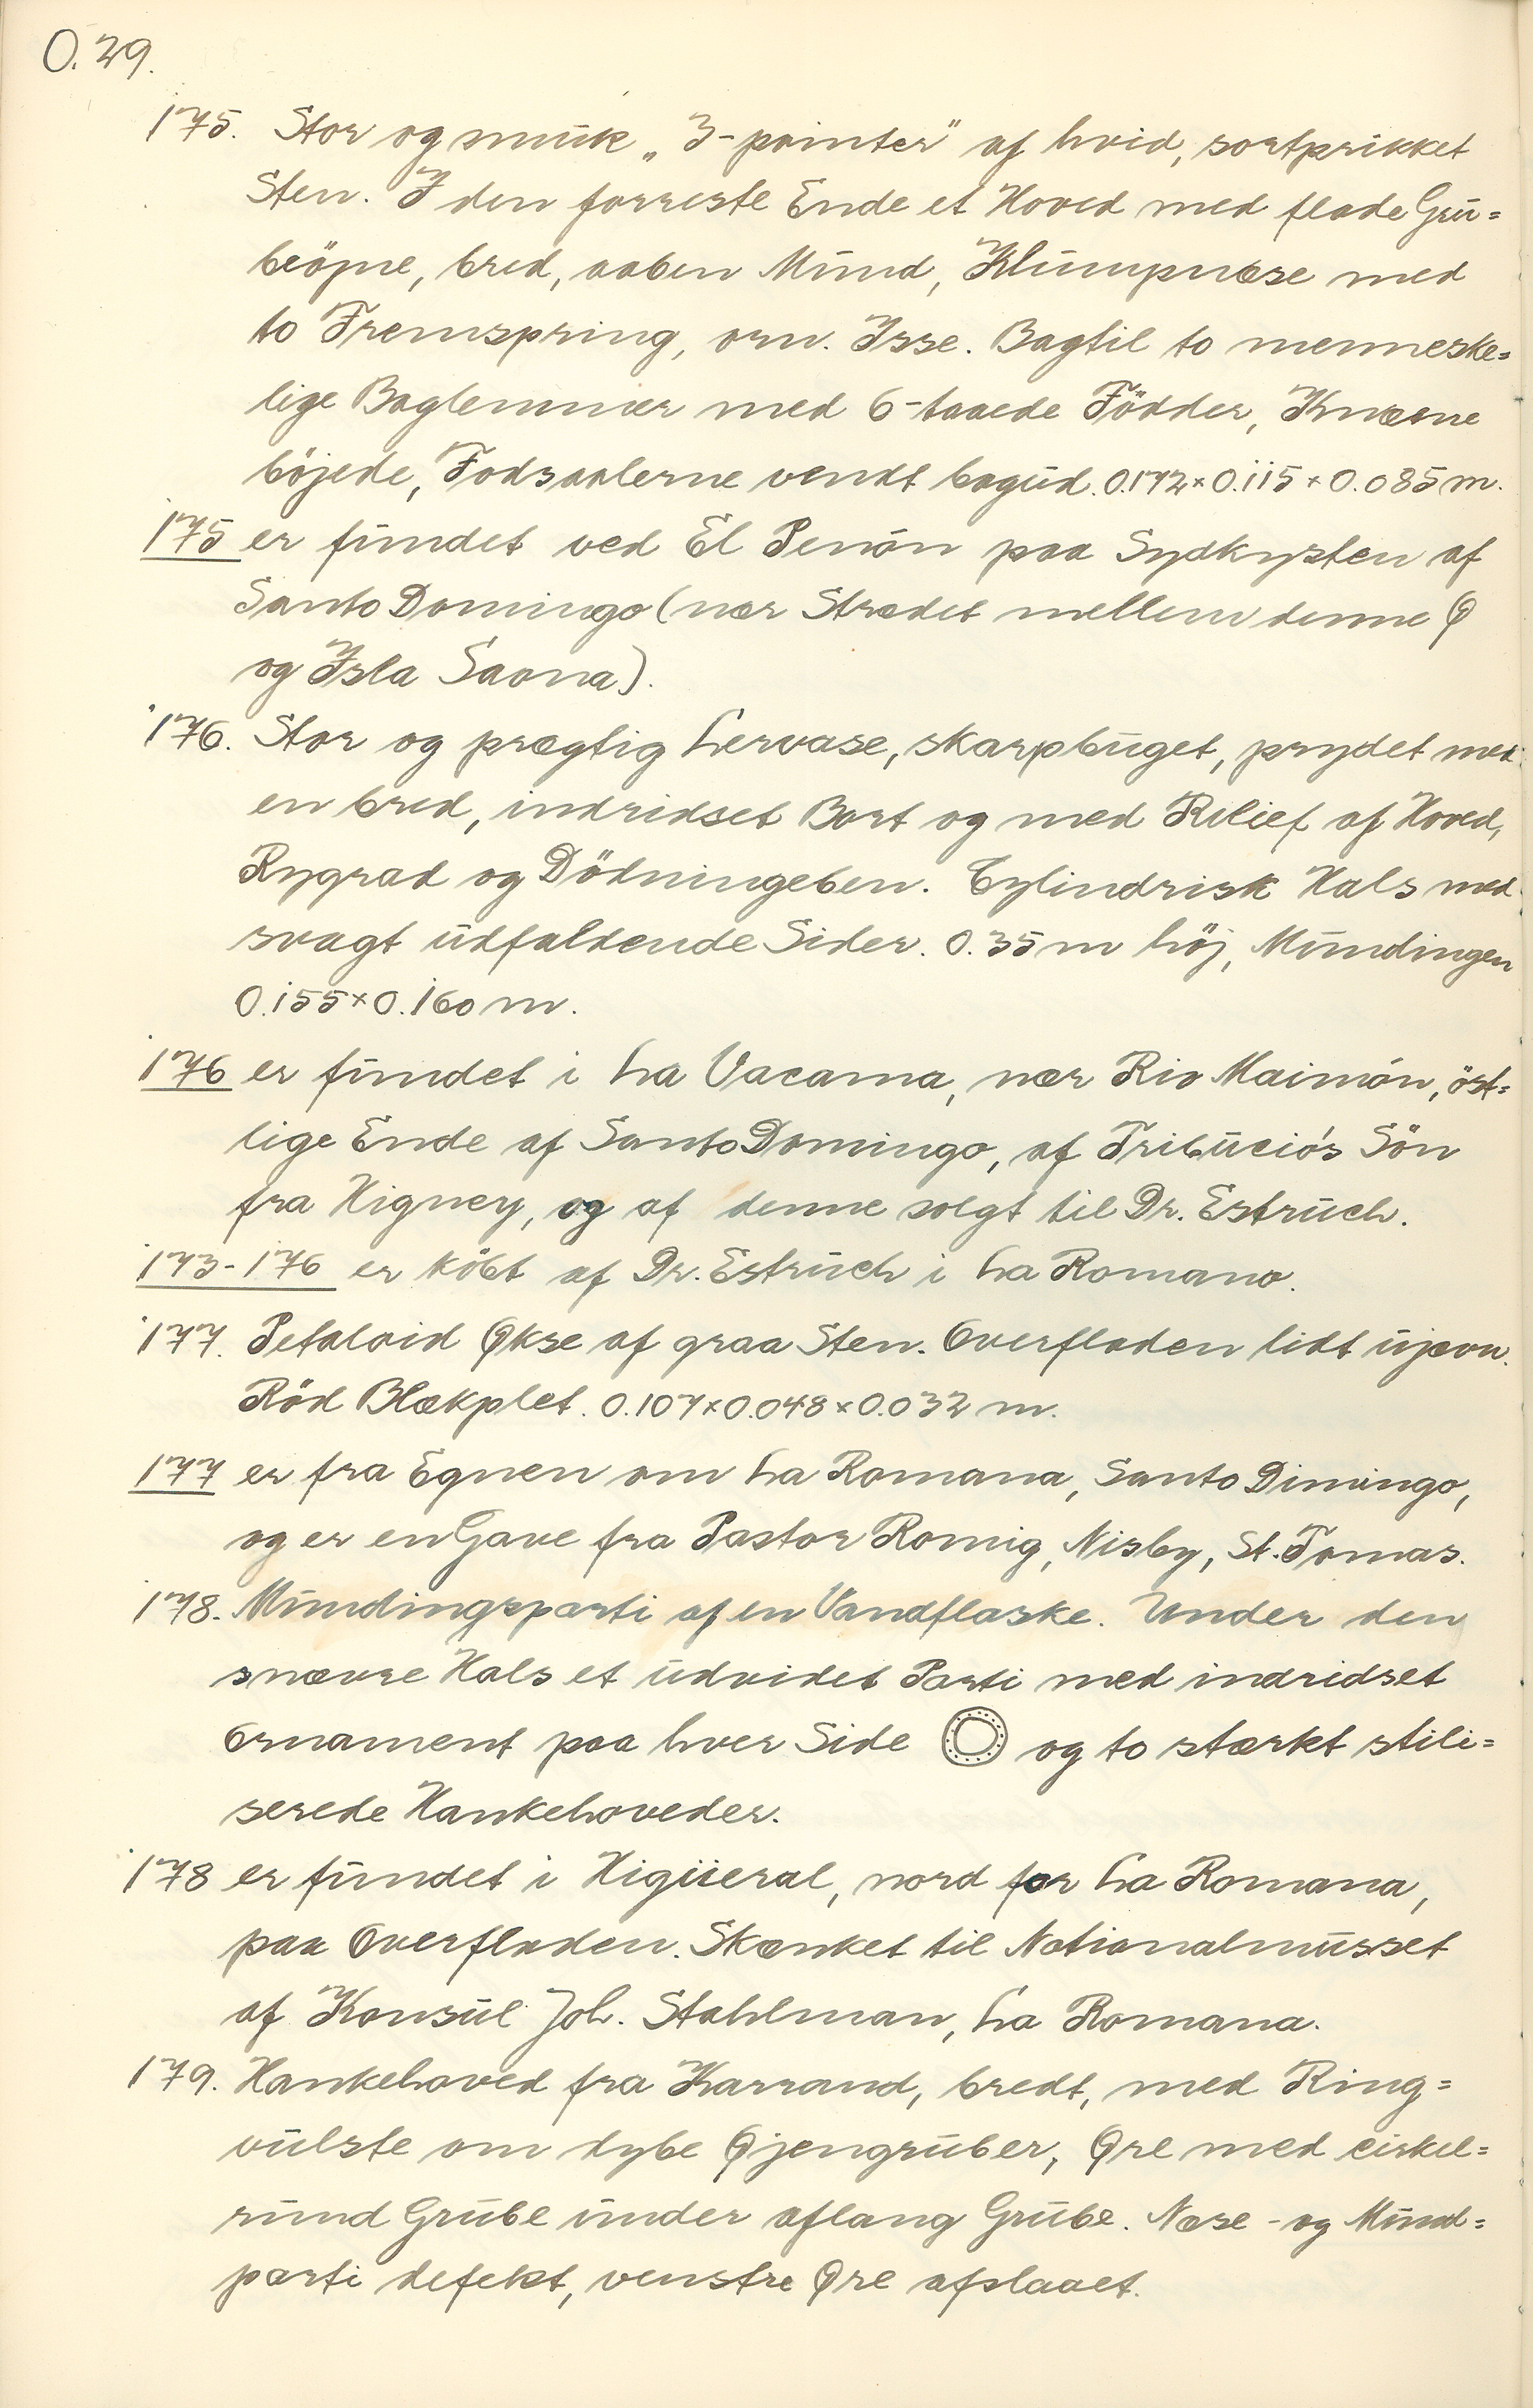 O.29.
175. Stor og smuk „3-pointer" af hvid, sortprikket
Sten. I den forreste Ende et Hoved med flade Gru=
beöjne, bred, aaben Mund, Klumpnæse med
to Fremspring, orn. Isse. Bagtil to menneske=
lige Baglemmer med 6-taaede Födder, Knæene
böjede, Fodsaalerne vendt bagud. 0.172×0.115×0.085 m.
175 er fundet ved El Penón paa Sydkysten af
Santo Domingo (nær Strædet mellem denne Ø
og Isla Saona).
176. Stor og prægtig Lervase, skarpbuget, prydet med
en bred, indridset Bort og med Relief af Hoved,
Rygrad og Dödningeben. Cylindrisk Hals med
svagt udfaldende Sider. 0.35 m höj, Mundingen
0.155×0.160 m.
176 er fundet i La Vacama, nær Rio Maimón, öst=
lige Ende af Santo Domingo, af Tribució's Sön
fra Higney, og af denne solgt til Dr. Estruch.
173-176 er köbt af Dr. Estruch i La Romano.
177. Petaloid Økse af graa Sten. Overfladen lidt ujævn.
Röd Blækplet. 0.107×0.048×0.032 m.
177 er fra Egnen om La Romana, Santo Dimingo,
og er en Gave fra Pastor Romig, Nisby, St. Tomas.
178. Mundingsparti af en Vandflaske. Under den
snævre Hals et udvidet Parti med indridset
Ornament paa hver Side og to stærkt stili=
serede Hankehoveder.
178 er fundet i Higüeral, nord for La Romana,
paa Overfladen. Skænket til Nationalmuseet
af Konsul Joh. Stahlman, La Romana.
179. Hankehoved fra Karrand, bredt, med Ring=
vulste om dybe Øjengruber, Øre med cirkel=
rund Grube under aflang Grube. Næse- og Mund=
parti defekt, venstre Øre afslaaet.